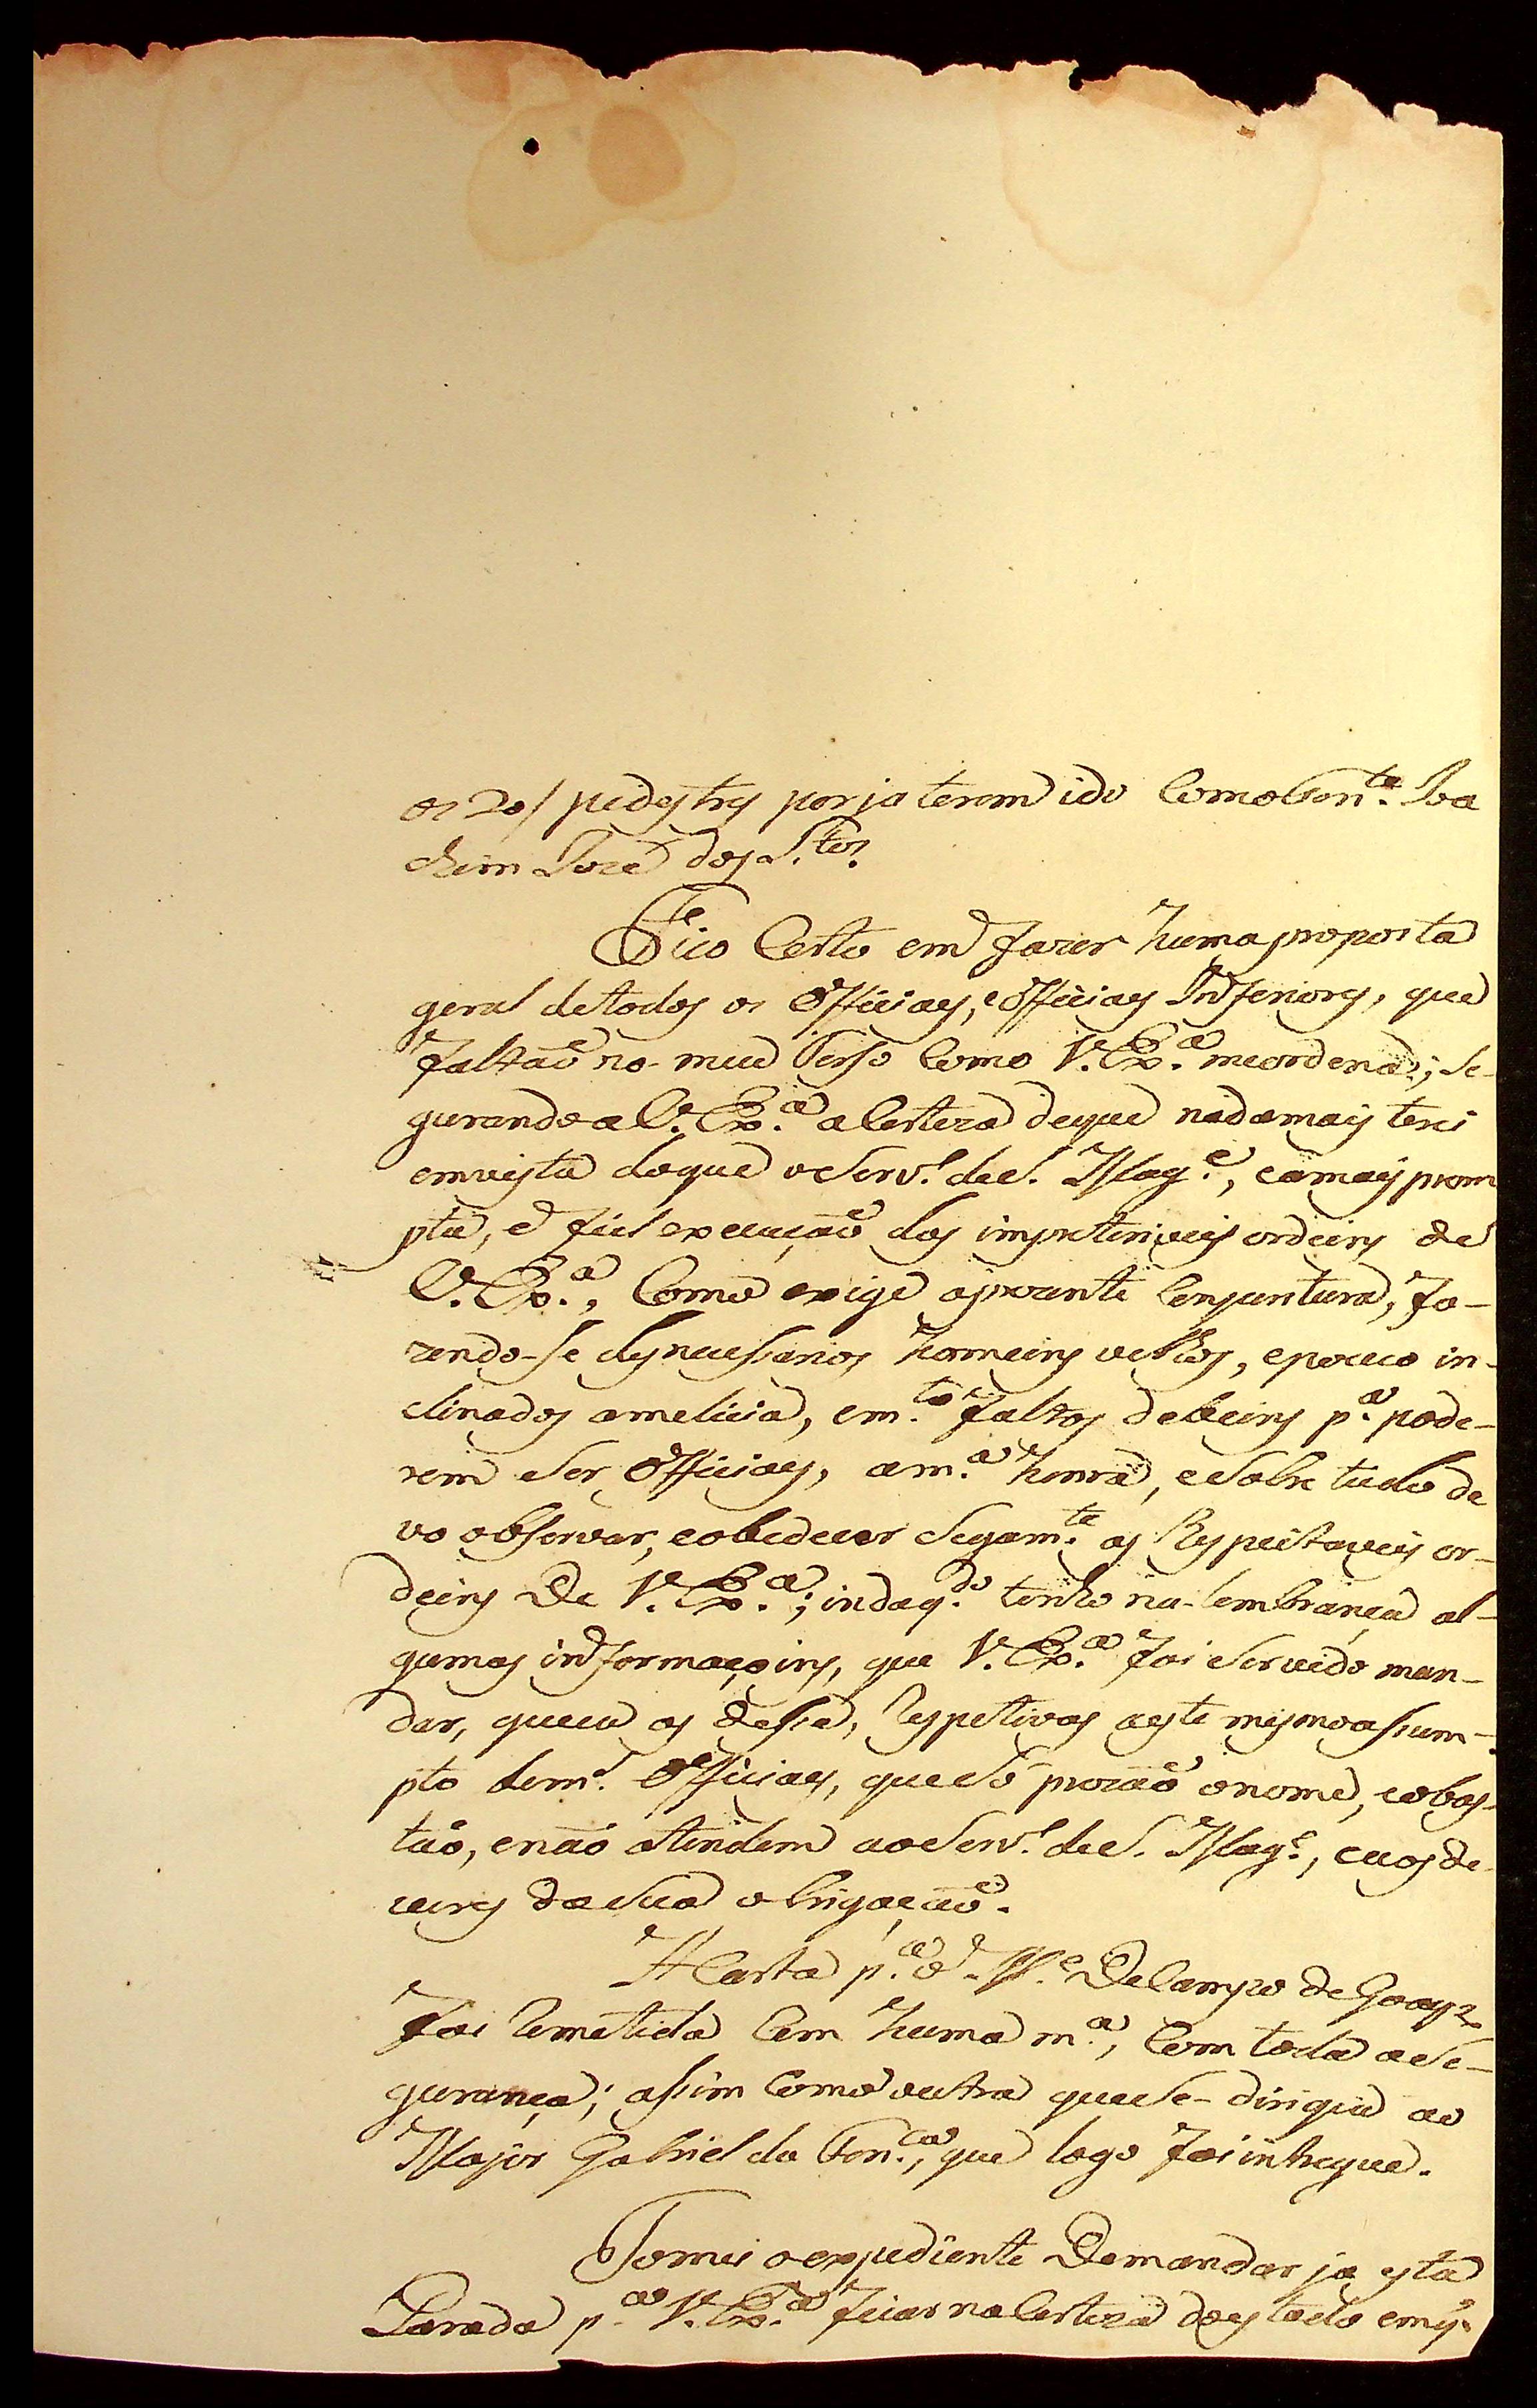 os 20/ pedestres por ja terem ido Com o Ten.te Joa
chim Jozé dos S.tos
Fico Certo em fazer huma proposta
geral de todos os Officiaes, e Officiaes Inferiores, que
faltaõ no meu Terso Como V. Ex.ª me ordena; se-
gurando a V. Ex.ª a Certeza de que nada mais terei
em vista do que o Serv.º de S. Mag.e, e a mais prom
pta, e fiel execuçaõ das impreteriveis ordeins de
V. Ex.ª, Como exige a prezente Conjuntura, fa-
zendo-se desnecessarios homeins velhos, e pouco in-
clinados a melicia, e m.to faltos de beins p.ª pode-
rem Ser Officiaes, a m.ª honra, e Sobre tudo de
vo observar, e obedecer Segam.te as Respeitaveis or-
deins De V. Ex.ª; inda q.do tenho na lembrança al-
gumas informaçoins, que V. Ex.ª foi Servido man-
dar, que eu as desse, Respetivas a este mesmo assum-
pto de m.s Officiaes, que Só prezaõ o nome, e o bas-
taõ, e naõ atendem ao Serv.º de S. Mag.e, e aos de-
veres da Sua obrigaçaõ.
A Carta p.ª o M.e De Campo de Goayz
foi Remetida Com huma m.ª, Com toda a Se-
gurança; assim Como outra que Se dirigia ao
Major Gabriel da Fon.ca, que logo foi intregue.
Tomei o expediente De mandar ja esta
Parada p.ª V. Ex.ª ficar na Certeza do estado em q.